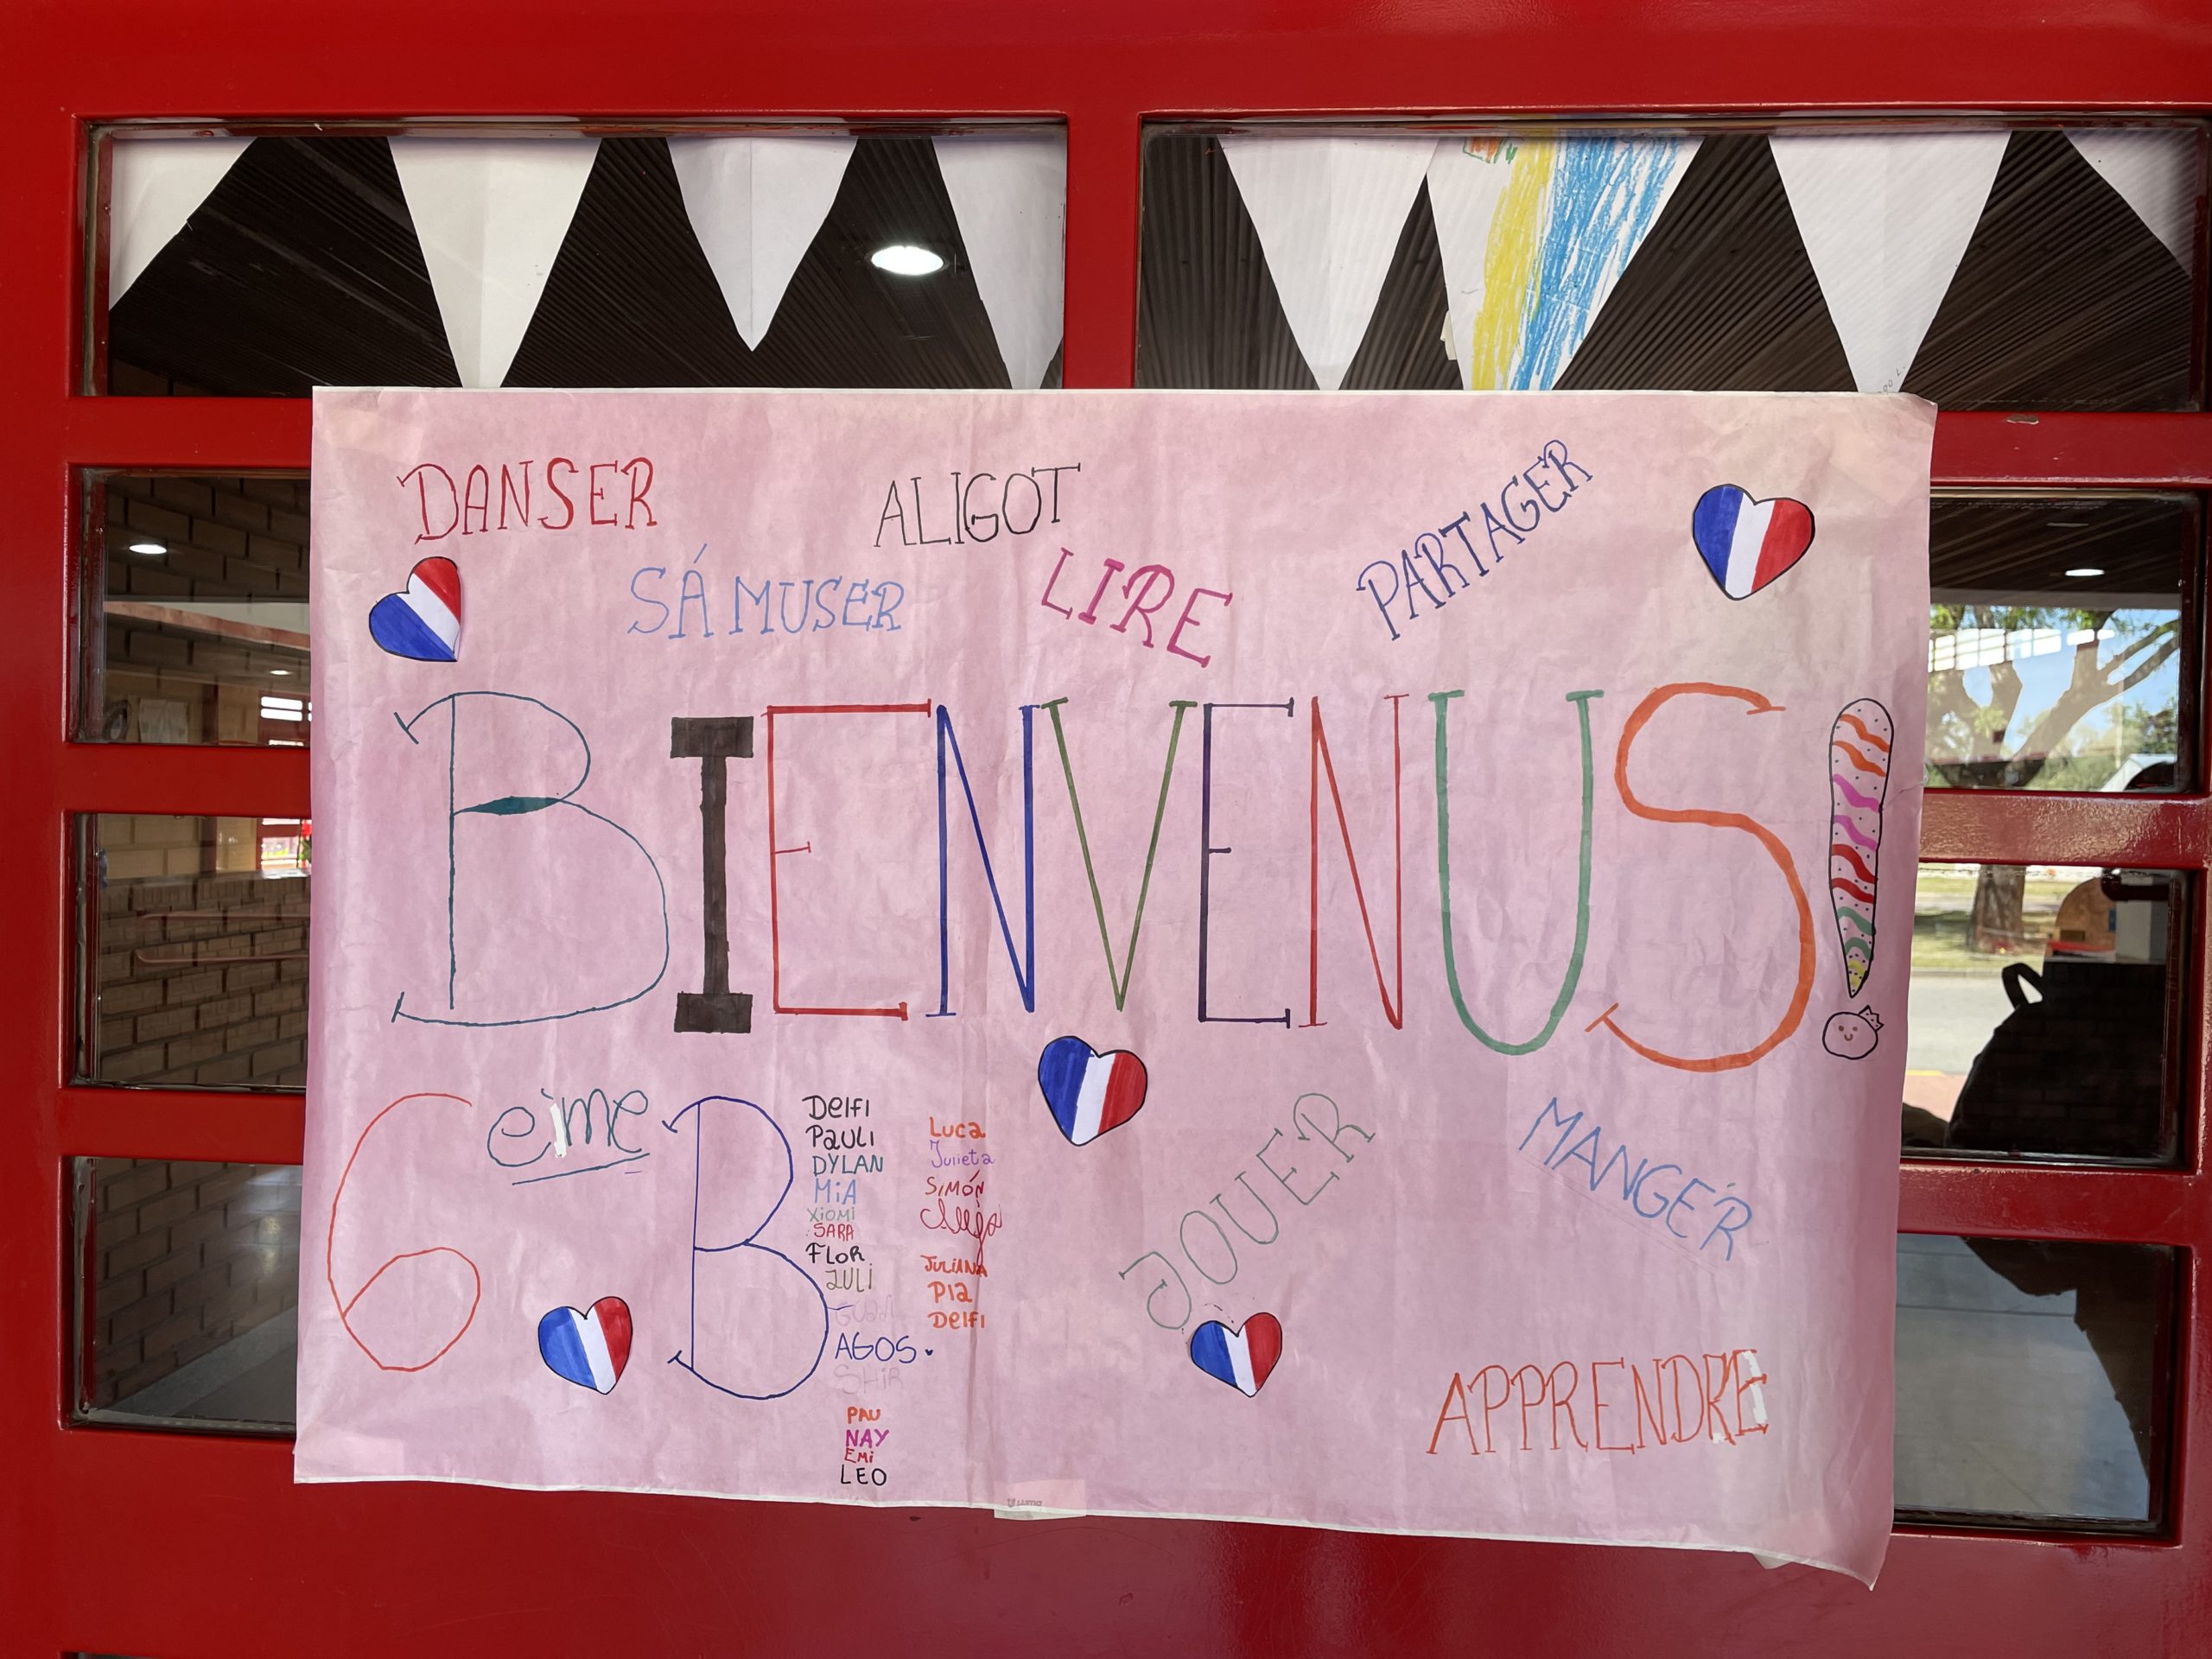 DANSER
ALIGOT
PARTAGER
SÁ MUSER
LIRE
BIENVENUS!
6 eime B
Delfi
Pauli
DYLAN
MiA
Xiomi
SARA
FLOR
JULi
AGOS.
SHiR
PAU
NAY
EMi
LEO
Luca
Julieta
SIMÓN
JULIANA
Pia
Delfi
JOUER
MANGER
APPRENDRE